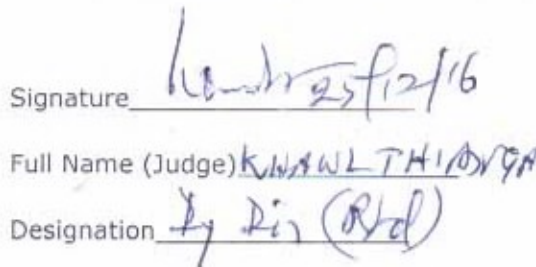 Signature 25/12/16
Full Name (Judge) KHAWLTHIANGA
Designation Dy Dir (Rtd)